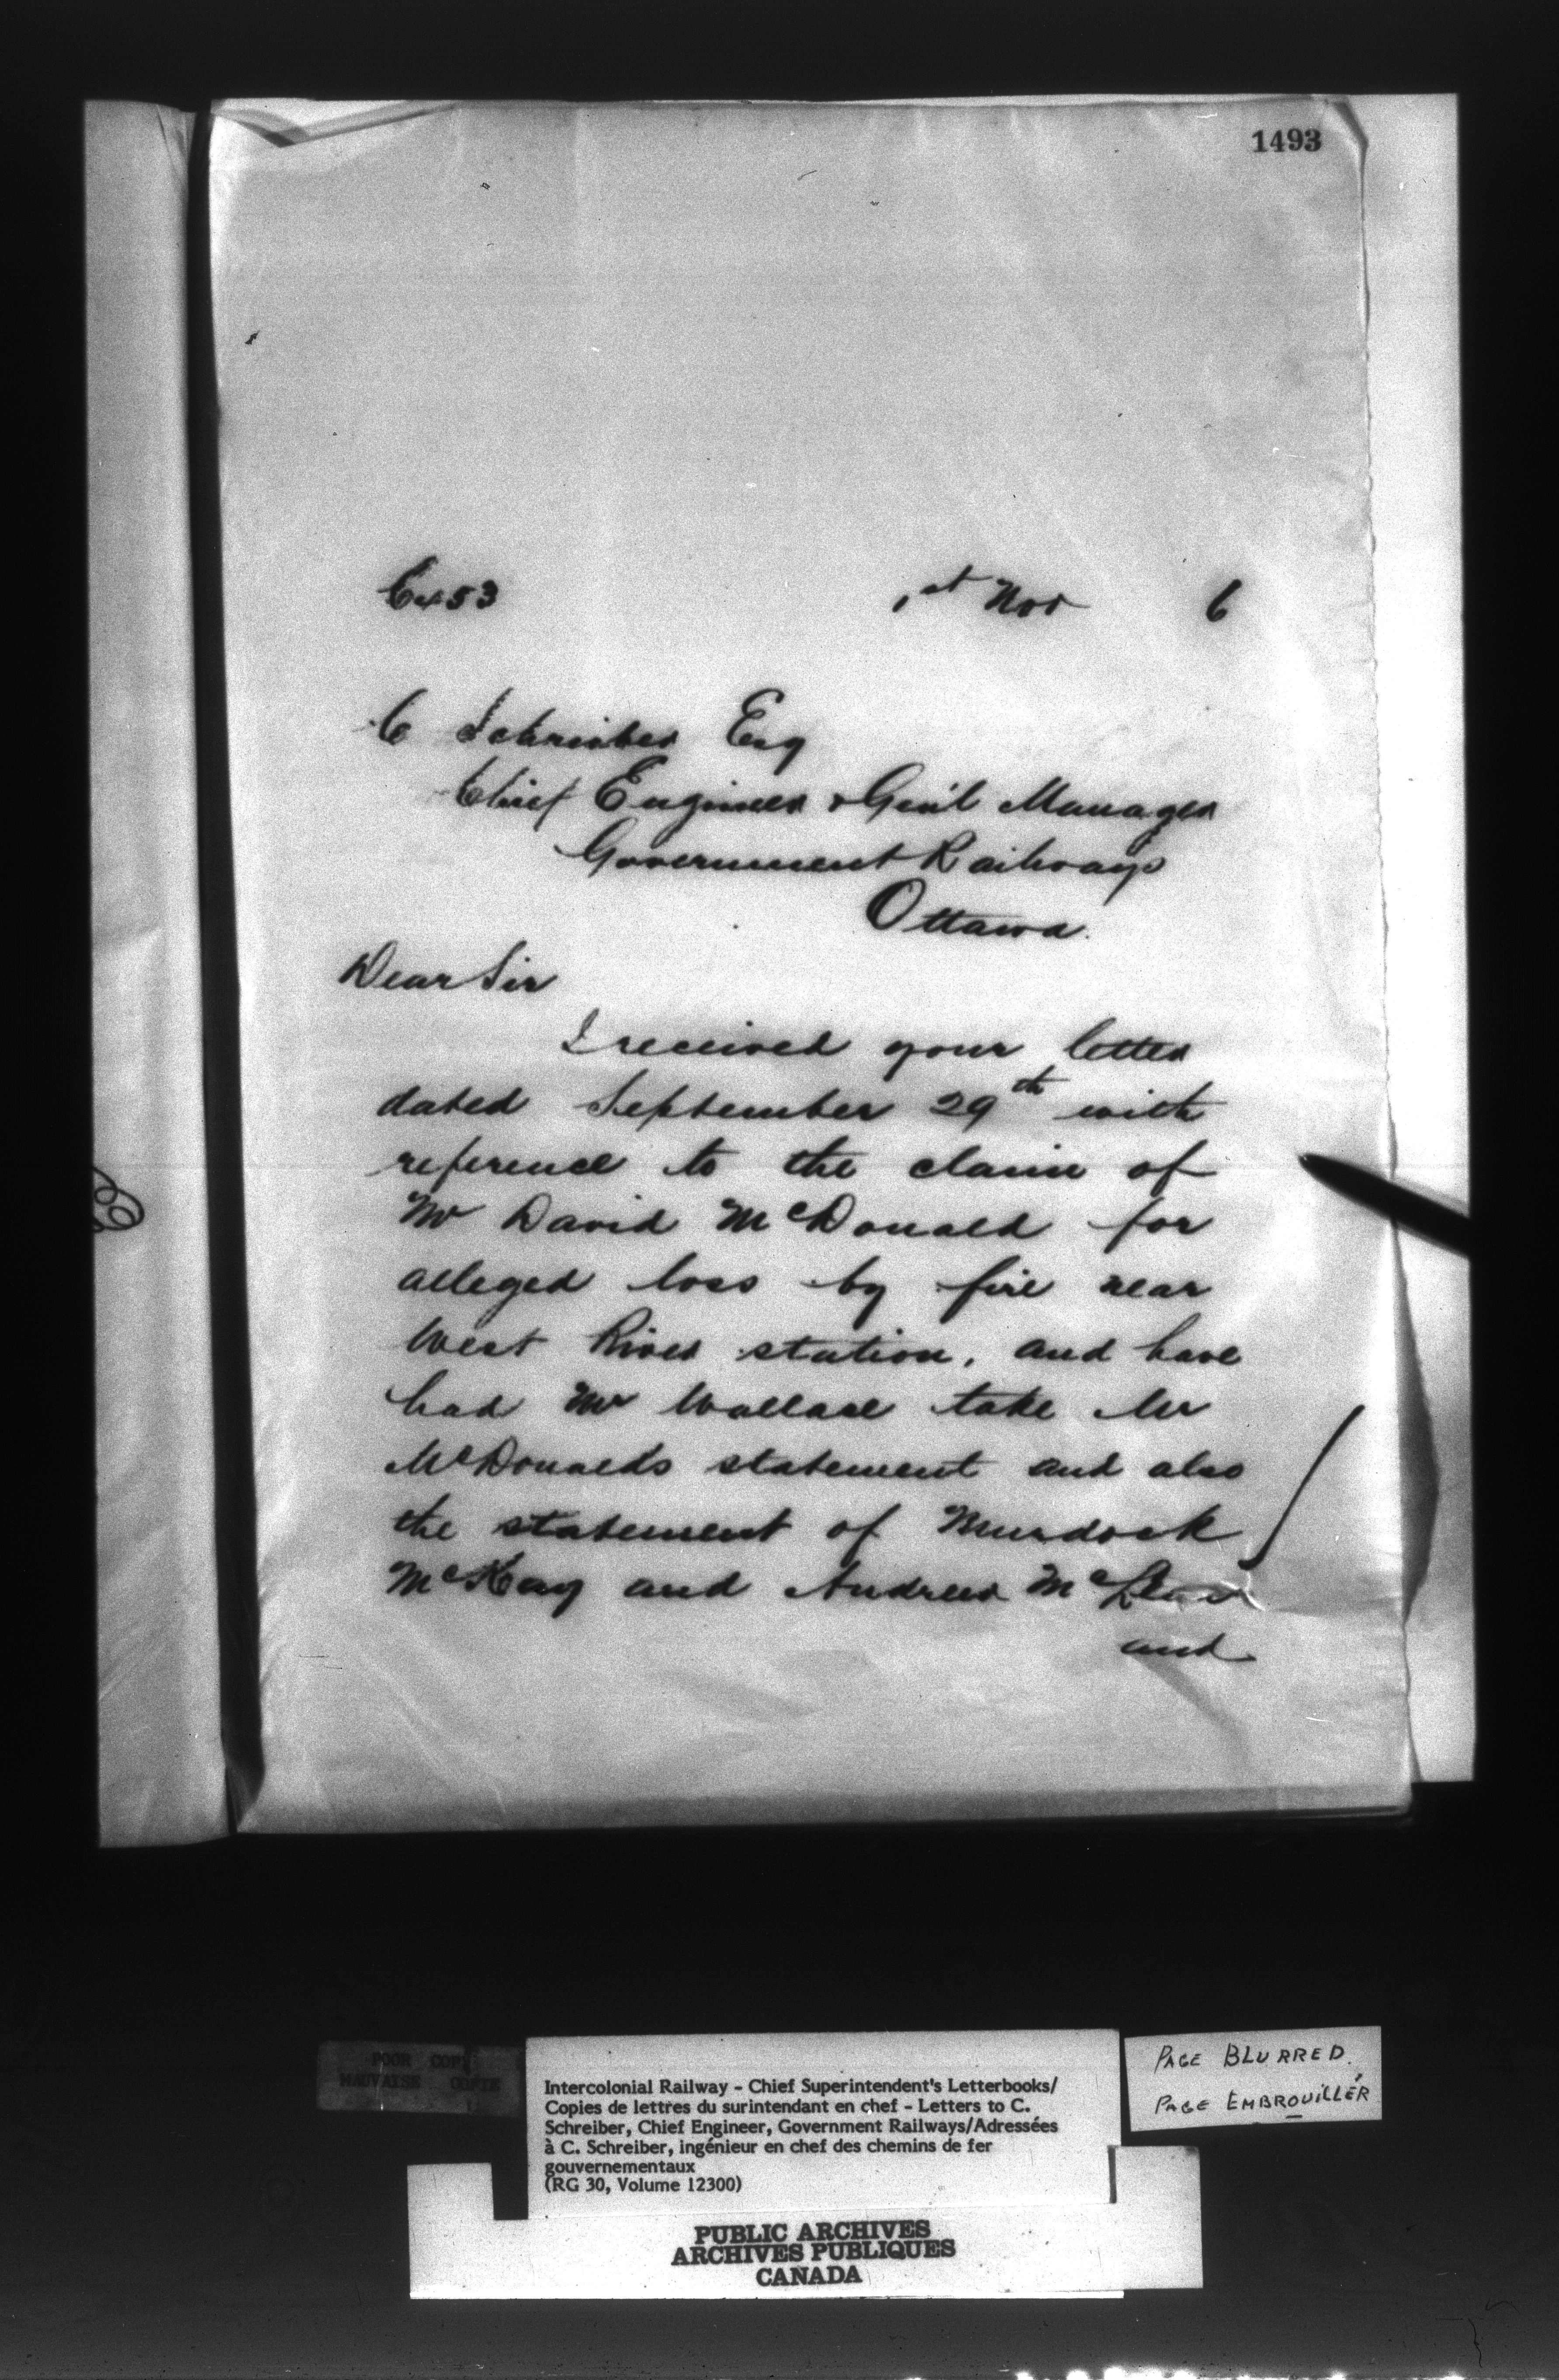 1493
1st Nov 6
C Schreiber Esq
Chief Engineer & Gen'l Manager
Government Railways
Ottawa.
Dear Sir
I received your letter
dated September 29th with
reference to the claim of
Mr David McDonald for
alleged loss by fire near
West River station, and have
had Mr Wallace take Mr
McDonald's statement and also
the statement of Murdock
McKay and Andrew
and
POOR COPY
MAUVAISE COPIE
Intercolonial Railway - Chief Superintendent's Letterbooks/
Copies de lettres du surintendant en chef - Letters to C.
Schreiber, Chief Engineer, Government Railways/Adressées
à C. Schreiber, ingénieur en chef des chemins de fer
gouvernementaux
(RG 30, Volume 12300)
PAGE BLURRED.
PAGE EMBROUILLÉR
PUBLIC ARCHIVES
ARCHIVES PUBLIQUES
CANADA